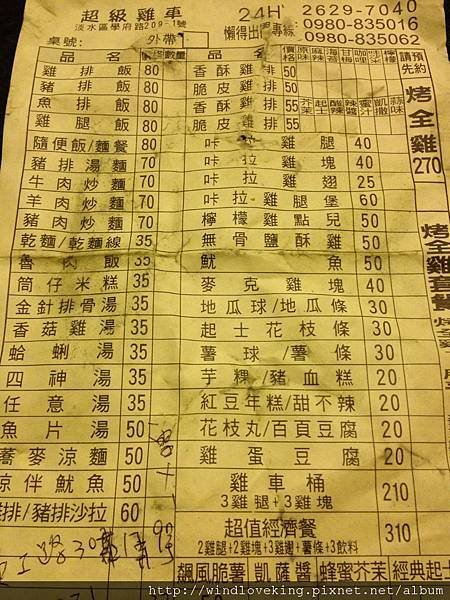 超級雞車 24H 2629-7040
淡水區學府路209-1號 懶得出 專線 0980-835016
0980-835062
桌號: 外帶
品名 價格 數量 品名 價格 原味 麻辣 海苔 甘梅 咖哩 檸檬 請先預約
雞排飯 80 香酥雞排 50
豬排飯 80 脆皮雞排 50
魚排飯 80 香酥雞排 55 芥末 起士 酸辣 辣醬 蜜汁 凱撒 蒜味
雞腿飯 80 脆皮雞排 55
隨便飯/麵餐 80 咔拉雞腿 40
豬排湯麵 70 咔拉雞塊 40
牛肉炒麵 70 咔拉雞翅 25
羊肉炒麵 70 咔拉雞腿堡 60
豬肉炒麵 70 檸檬雞點兒 50
乾麵/乾麵線 35 無骨鹽酥雞 50
魯肉飯 35 魷魚 50
筒仔米糕 35 麥克雞塊 40
金針排骨湯 35 地瓜球/地瓜條 30
香菇雞湯 35 起士花枝條 30
蛤蜊湯 35 薯球/薯條 30
四神湯 35 芋粿/豬血糕 20
任意湯 35 紅豆年糕/甜不辣 20
魚片湯 50 花枝丸/百頁豆腐 20
蕎麥涼麵 50 雞蛋豆腐 20
涼伴魷魚 50 雞車桶 210
3雞腿+3雞塊
雞排/豬排沙拉 60 超值經濟餐 310
2雞腿+2雞塊+3雞翅+薯條+3飲料
飆風脆薯 凱薩醬 蜂蜜芥末 經典起士
烤全雞 270
烤全雞套餐
http://windloveking.pixnet.net/album